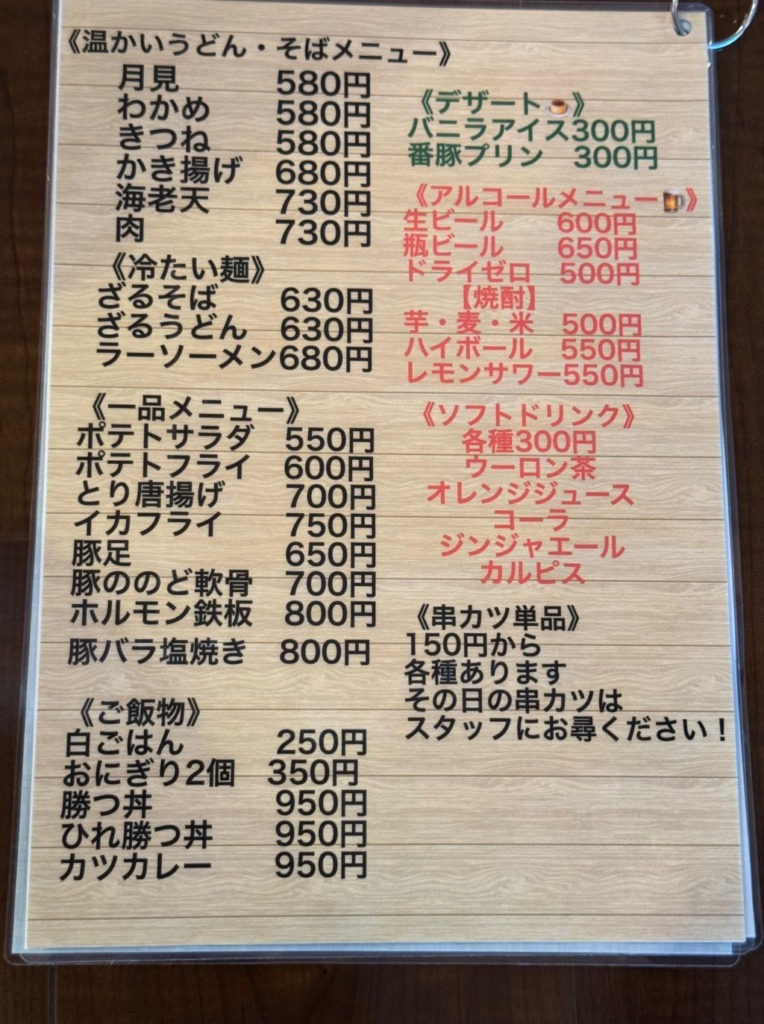 《温かいうどん・そばメニュー》
月見 580円
わかめ 580円
きつね 580円
かき揚げ 680円
海老天 730円
肉 730円
《冷たい麺》
ざるそば 630円
ざるうどん 630円
ラーソーメン680円
《一品メニュー》
ポテトサラダ 550円
ポテトフライ 600円
とり唐揚げ 700円
イカフライ 750円
豚足 650円
豚ののど軟骨 700円
ホルモン鉄板 800円
豚バラ塩焼き 800円
《ご飯物》
白ごはん 250円
おにぎり2個 350円
勝つ丼 950円
ひれ勝つ丼 950円
カツカレー 950円
《デザート🍮》
バニラアイス300円
番豚プリン 300円
《アルコールメニュー🍺》
生ビール 600円
瓶ビール 650円
ドライゼロ 500円
【焼酎】
芋・麦・米 500円
ハイボール 550円
レモンサワー550円
《ソフトドリンク》
各種300円
ウーロン茶
オレンジジュース
コーラ
ジンジャエール
カルピス
《串カツ単品》
150円から
各種あります
その日の串カツは
スタッフにお尋ください！